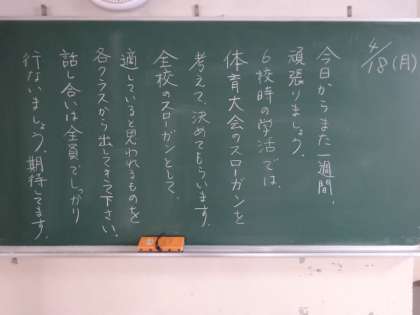 4/18(月)
今日からまた一週間、
頑張りましょう。
6校時の学活では、
体育大会のスローガンを
考えて、決めてもらいます。
全校のスローガンとして、
適していると思われるものを
各クラスから出してきて下さい。
話し合いは全員でしっかり
行ないましょう。期待してます。